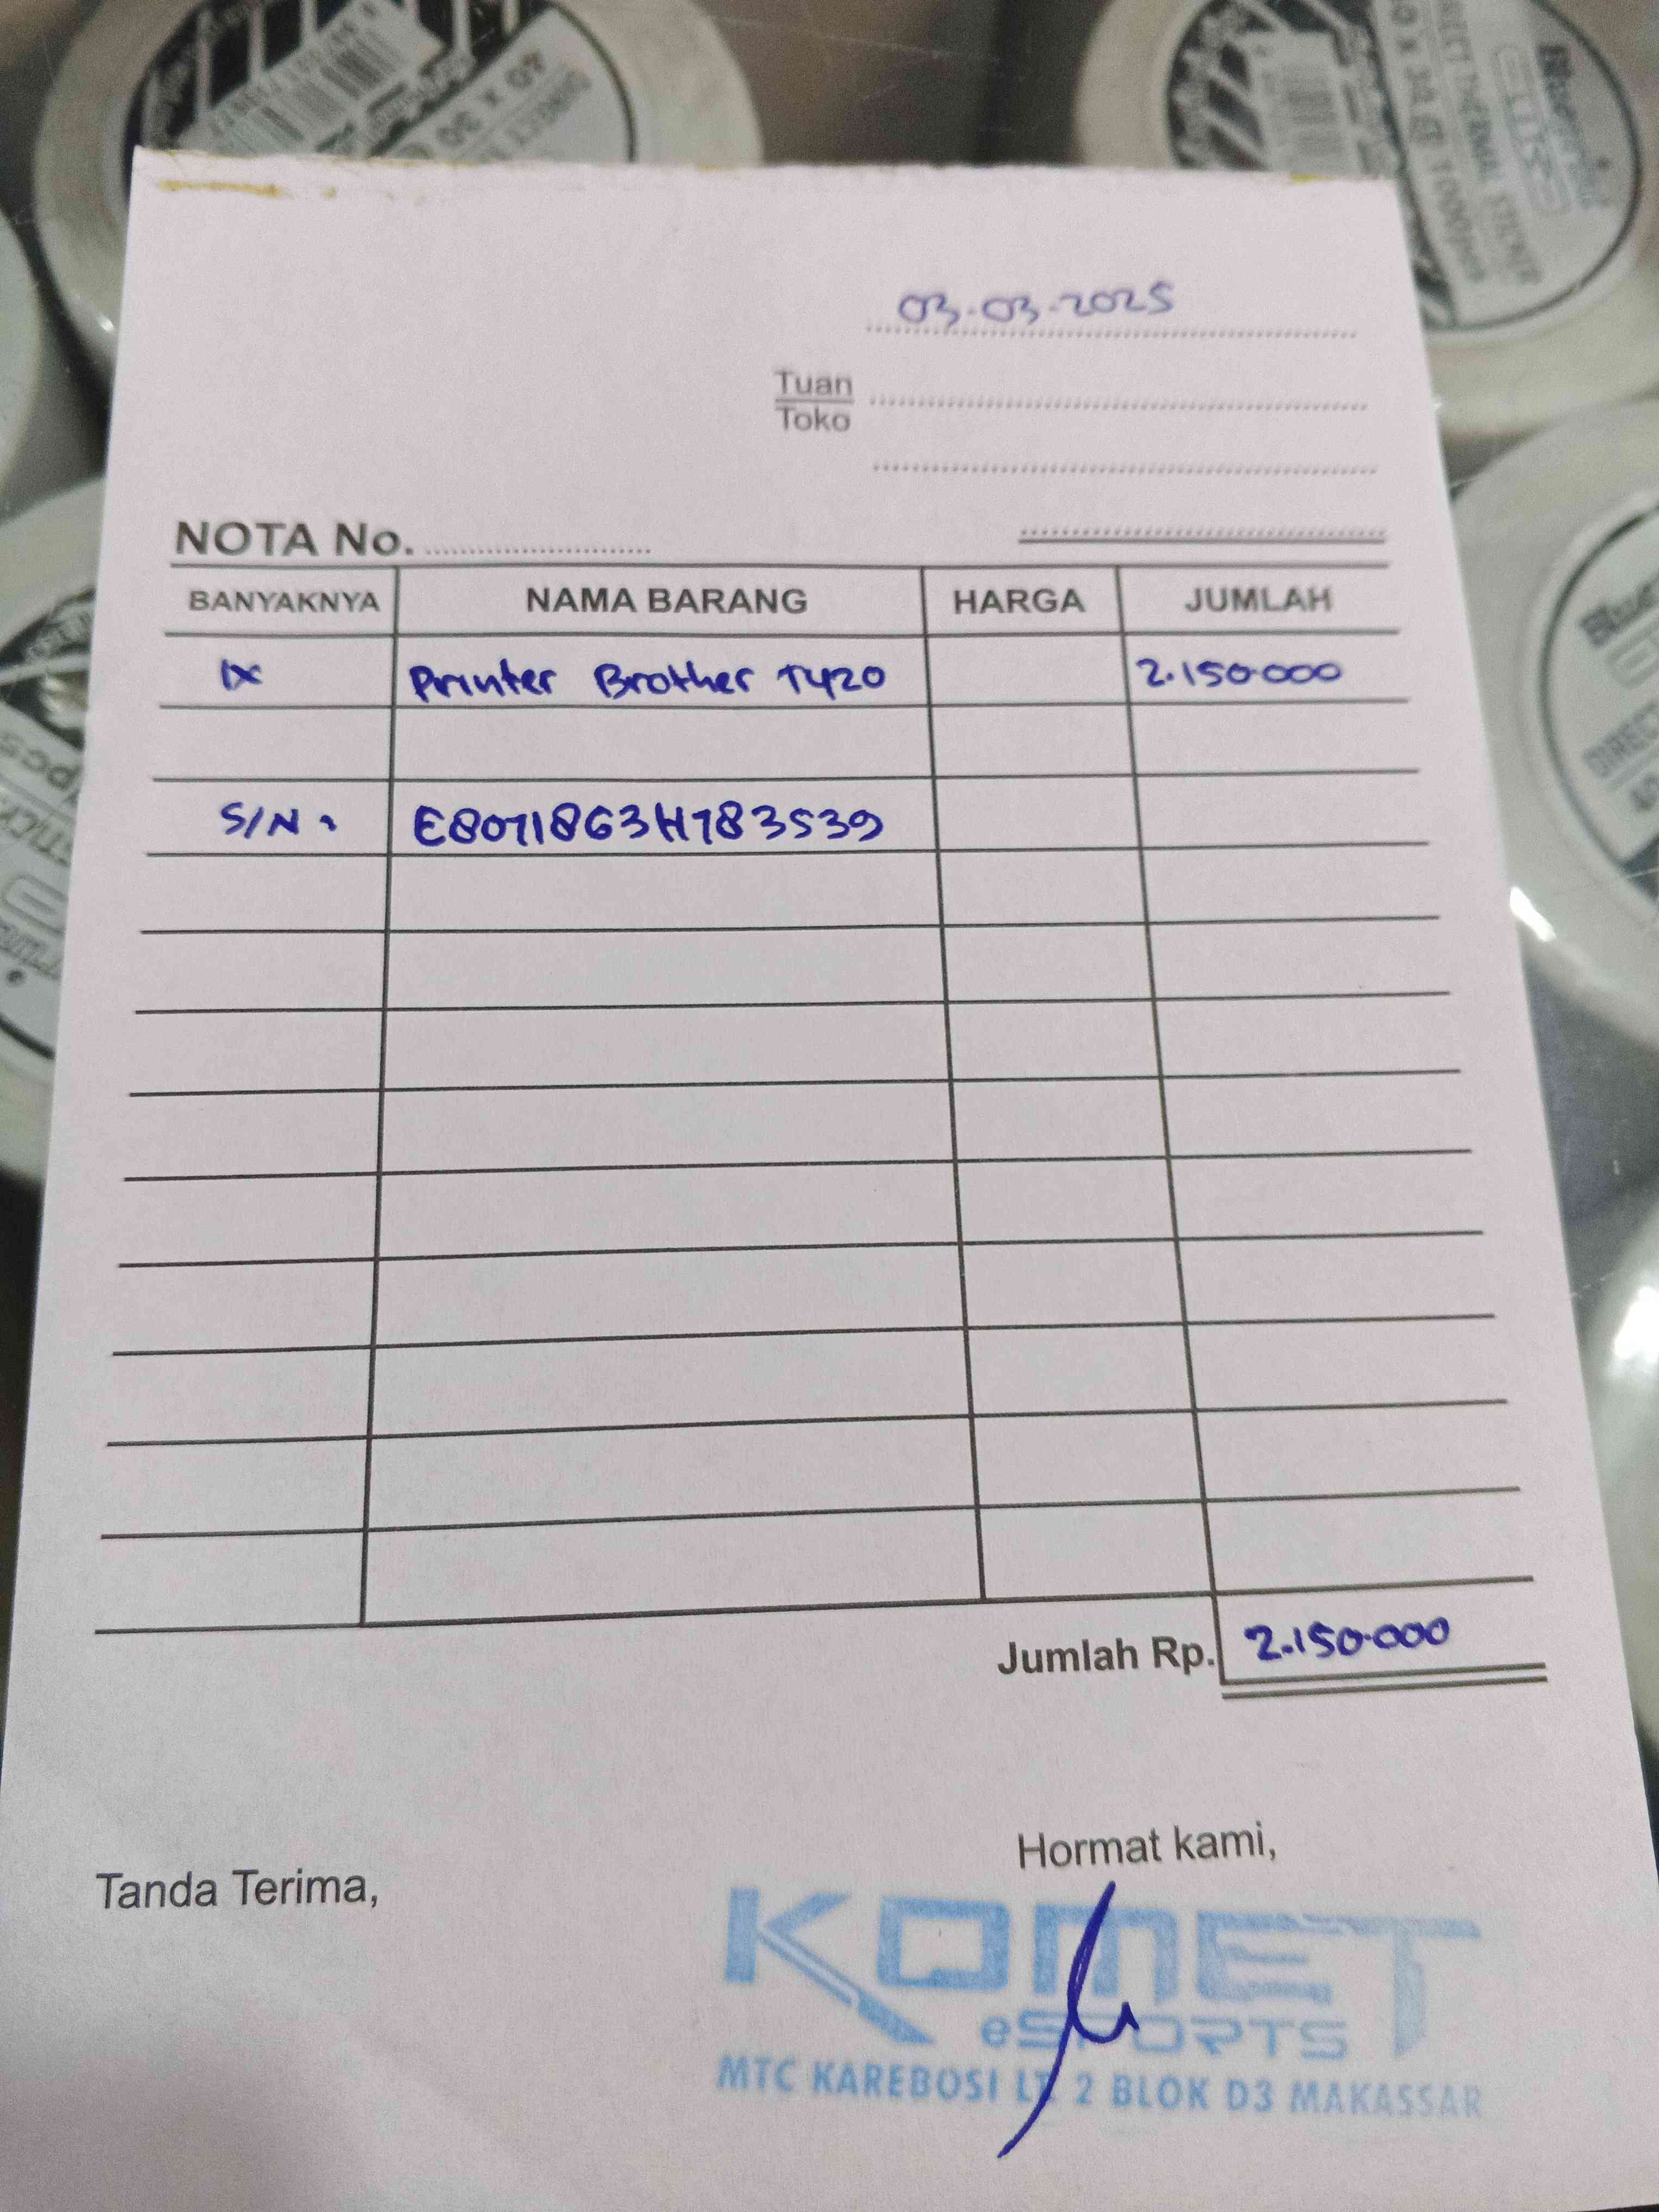 03-03-2025
Tuan
Toko
NOTA No.
BANYAKNYA NAMA BARANG HARGA JUMLAH
1x Printer Brother T420 2.150.000
S/N : E80711863H783539
Jumlah Rp. 2.150.000
Hormat kami,
Tanda Terima,
KOMET
eSPORTS
MTC KAREBOSI LT 2 BLOK D3 MAKASSAR